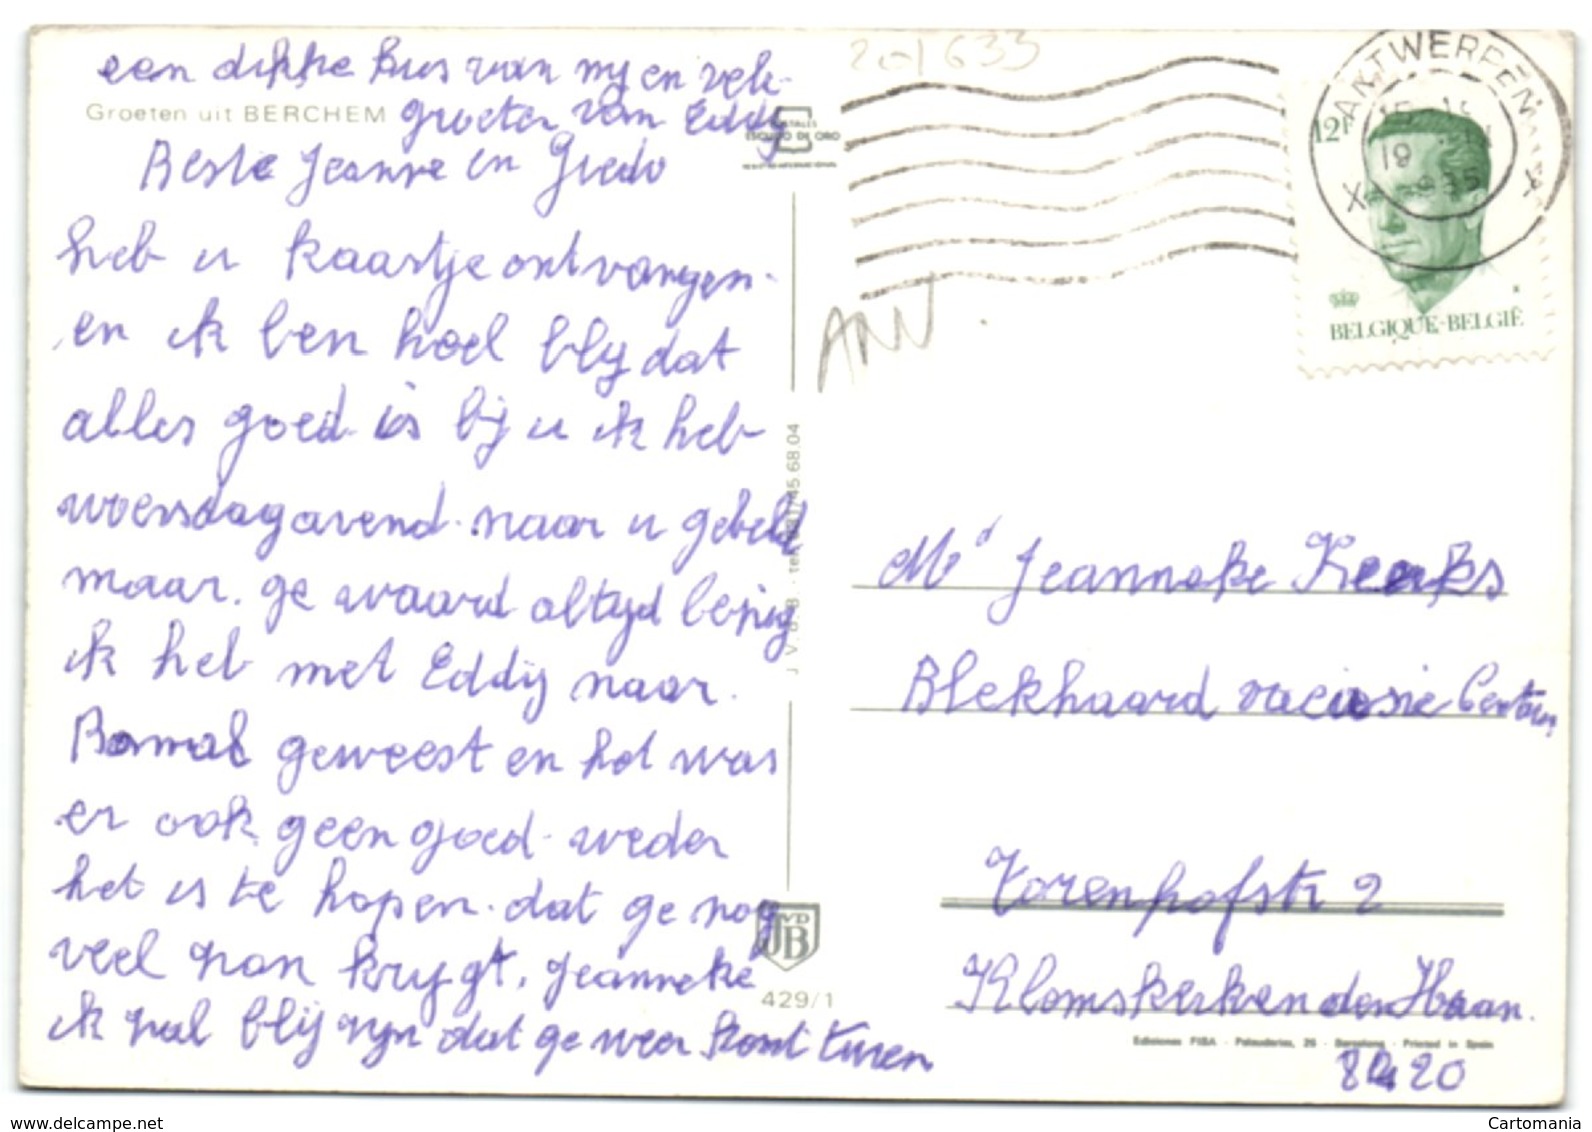 een dikke kus van mij en vele
groeten van Eddy
Groeten uit BERCHEM
Beste Jeanne en Guido
heb u kaartje ontvangen
en ik ben heel bly dat
alles goed is bij u ik heb
woensdagavend naar u gebeld
maar ge waard altyd bezig
ik heb met Eddy naar
Bomal geweest en het was
er ook geen goed weder
het is te hopen dat ge nog
veel van krygt. Jeanneke
ik zal blij zyn dat ge weer komt turen
201633
ANTWERPEN
X
X
12F
BELGIQUE-BELGIË
ANV
ESCUDO DE ORO
J.V.d.B. - tel.
45.68.04
JVDB
429/1
Md Jeanneke
Blekhaard vacansie Centrum
Torenhofstr 2
Klemskerken den Haan.
Ediciones FISA - Palaudarias, 26 - Barcelona - Printed in Spain
8420
www.cartomania.com
Cartomania